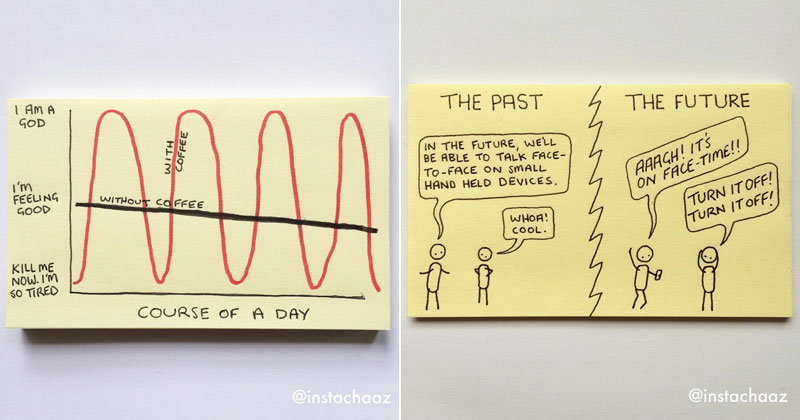 I AM A
GOD
I'M
FEELING
GOOD
KILL ME
NOW. I'M
SO TIRED
WITH
COFFEE
WITHOUT COFFEE
COURSE OF A DAY
@instachaaz
THE PAST
IN THE FUTURE, WE'LL
BE ABLE TO TALK FACE-
TO-FACE ON SMALL
HAND HELD DEVICES.
WHOA!
COOL.
THE FUTURE
AAAGH! IT'S
ON FACE-TIME!!
TURN IT OFF!
TURN IT OFF!
@instachaaz